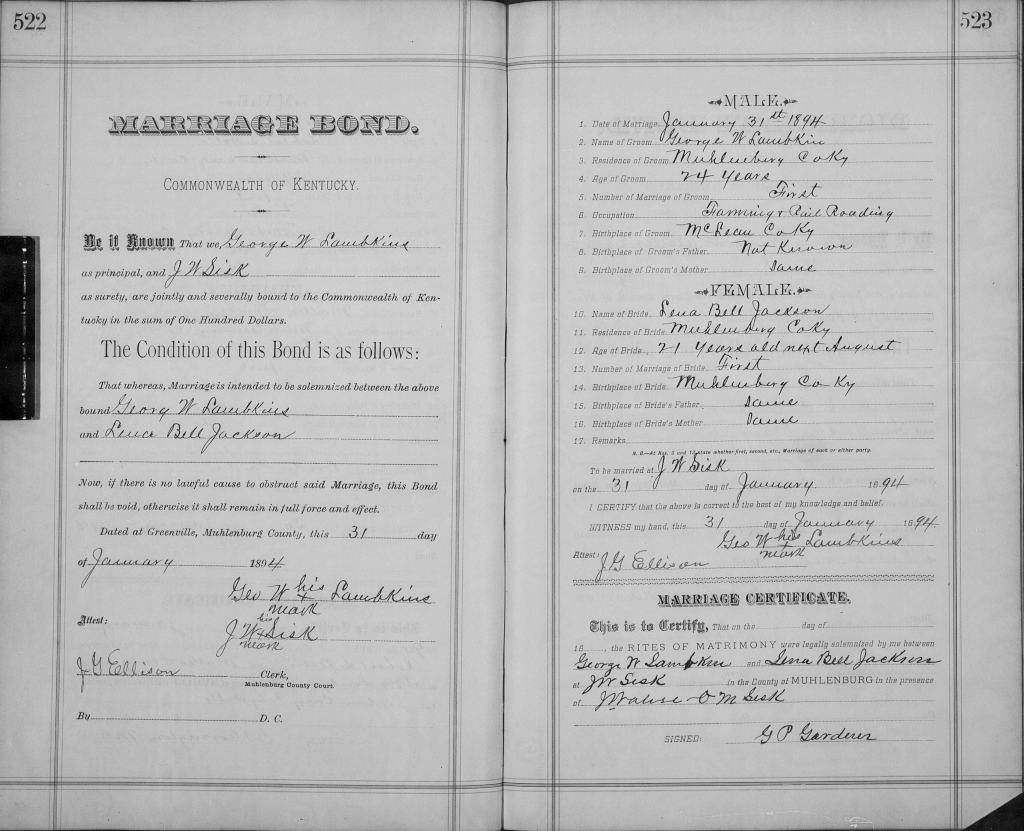 522
MARRIAGE BOND.
COMMONWEALTH OF KENTUCKY.
Be it Known That we, George W Lambkins
as principal, and J W Sisk
as surety, are jointly and severally bound to the Commonwealth of Ken-
tucky in the sum of One Hundred Dollars.
The Condition of this Bond is as follows:
That whereas, Marriage is intended to be solemnized between the above
bound Georg W Lambkins
and Lena Bell Jackson
Now, if there is no lawful cause to obstruct said Marriage, this Bond
shall be void, otherwise it shall remain in full force and effect.
Dated at Greenville, Muhlenburg County, this 31 day
of January 1894
Geo W his x mark Lambkins
Attest:
J W his x mark Sisk
J G Ellison Clerk,
Muhlenburg County Court.
By D. C.
523
MALE.
1. Date of Marriage, January 31st 1894
2. Name of Groom George W Lambkin
3. Residence of Groom Muhlenberg Co Ky
4. Age of Groom 24 Years
5. Number of Marriage of Groom First
6. Occupation Farming & Rail Roading
7. Birthplace of Groom McLean Co Ky
8. Birthplace of Groom's Father Not Known
9. Birthplace of Groom's Mother Same
FEMALE.
10. Name of Bride Lena Bell Jackson
11. Residence of Bride Muhlenberg Co Ky
12. Age of Bride, 21 Years old next August
13. Number of Marriage of Bride First
14. Birthplace of Bride Muhlenberg Co Ky
15. Birthplace of Bride's Father Same
16. Birthplace of Bride's Mother Same
17. Remarks
N. B.—At Nos. 5 and 13 state whether first, second, etc., Marriage of each or either party.
To be married at J W Sisk
on the 31 day of January. 1894
I CERTIFY that the above is correct to the best of my knowledge and belief.
WITNESS my hand, this 31 day of January 1894.
Geo W his x mark Lambkins
Attest: J G Ellison
MARRIAGE CERTIFICATE.
This is to Certify, That on the day of
18 , the RITES OF MATRIMONY were legally solemnized by me between
George W Lambkin and Lena Bell Jackson
at JW Sisk in the County of MUHLENBURG in the presence
of O M Sisk
SIGNED: G P Gardener